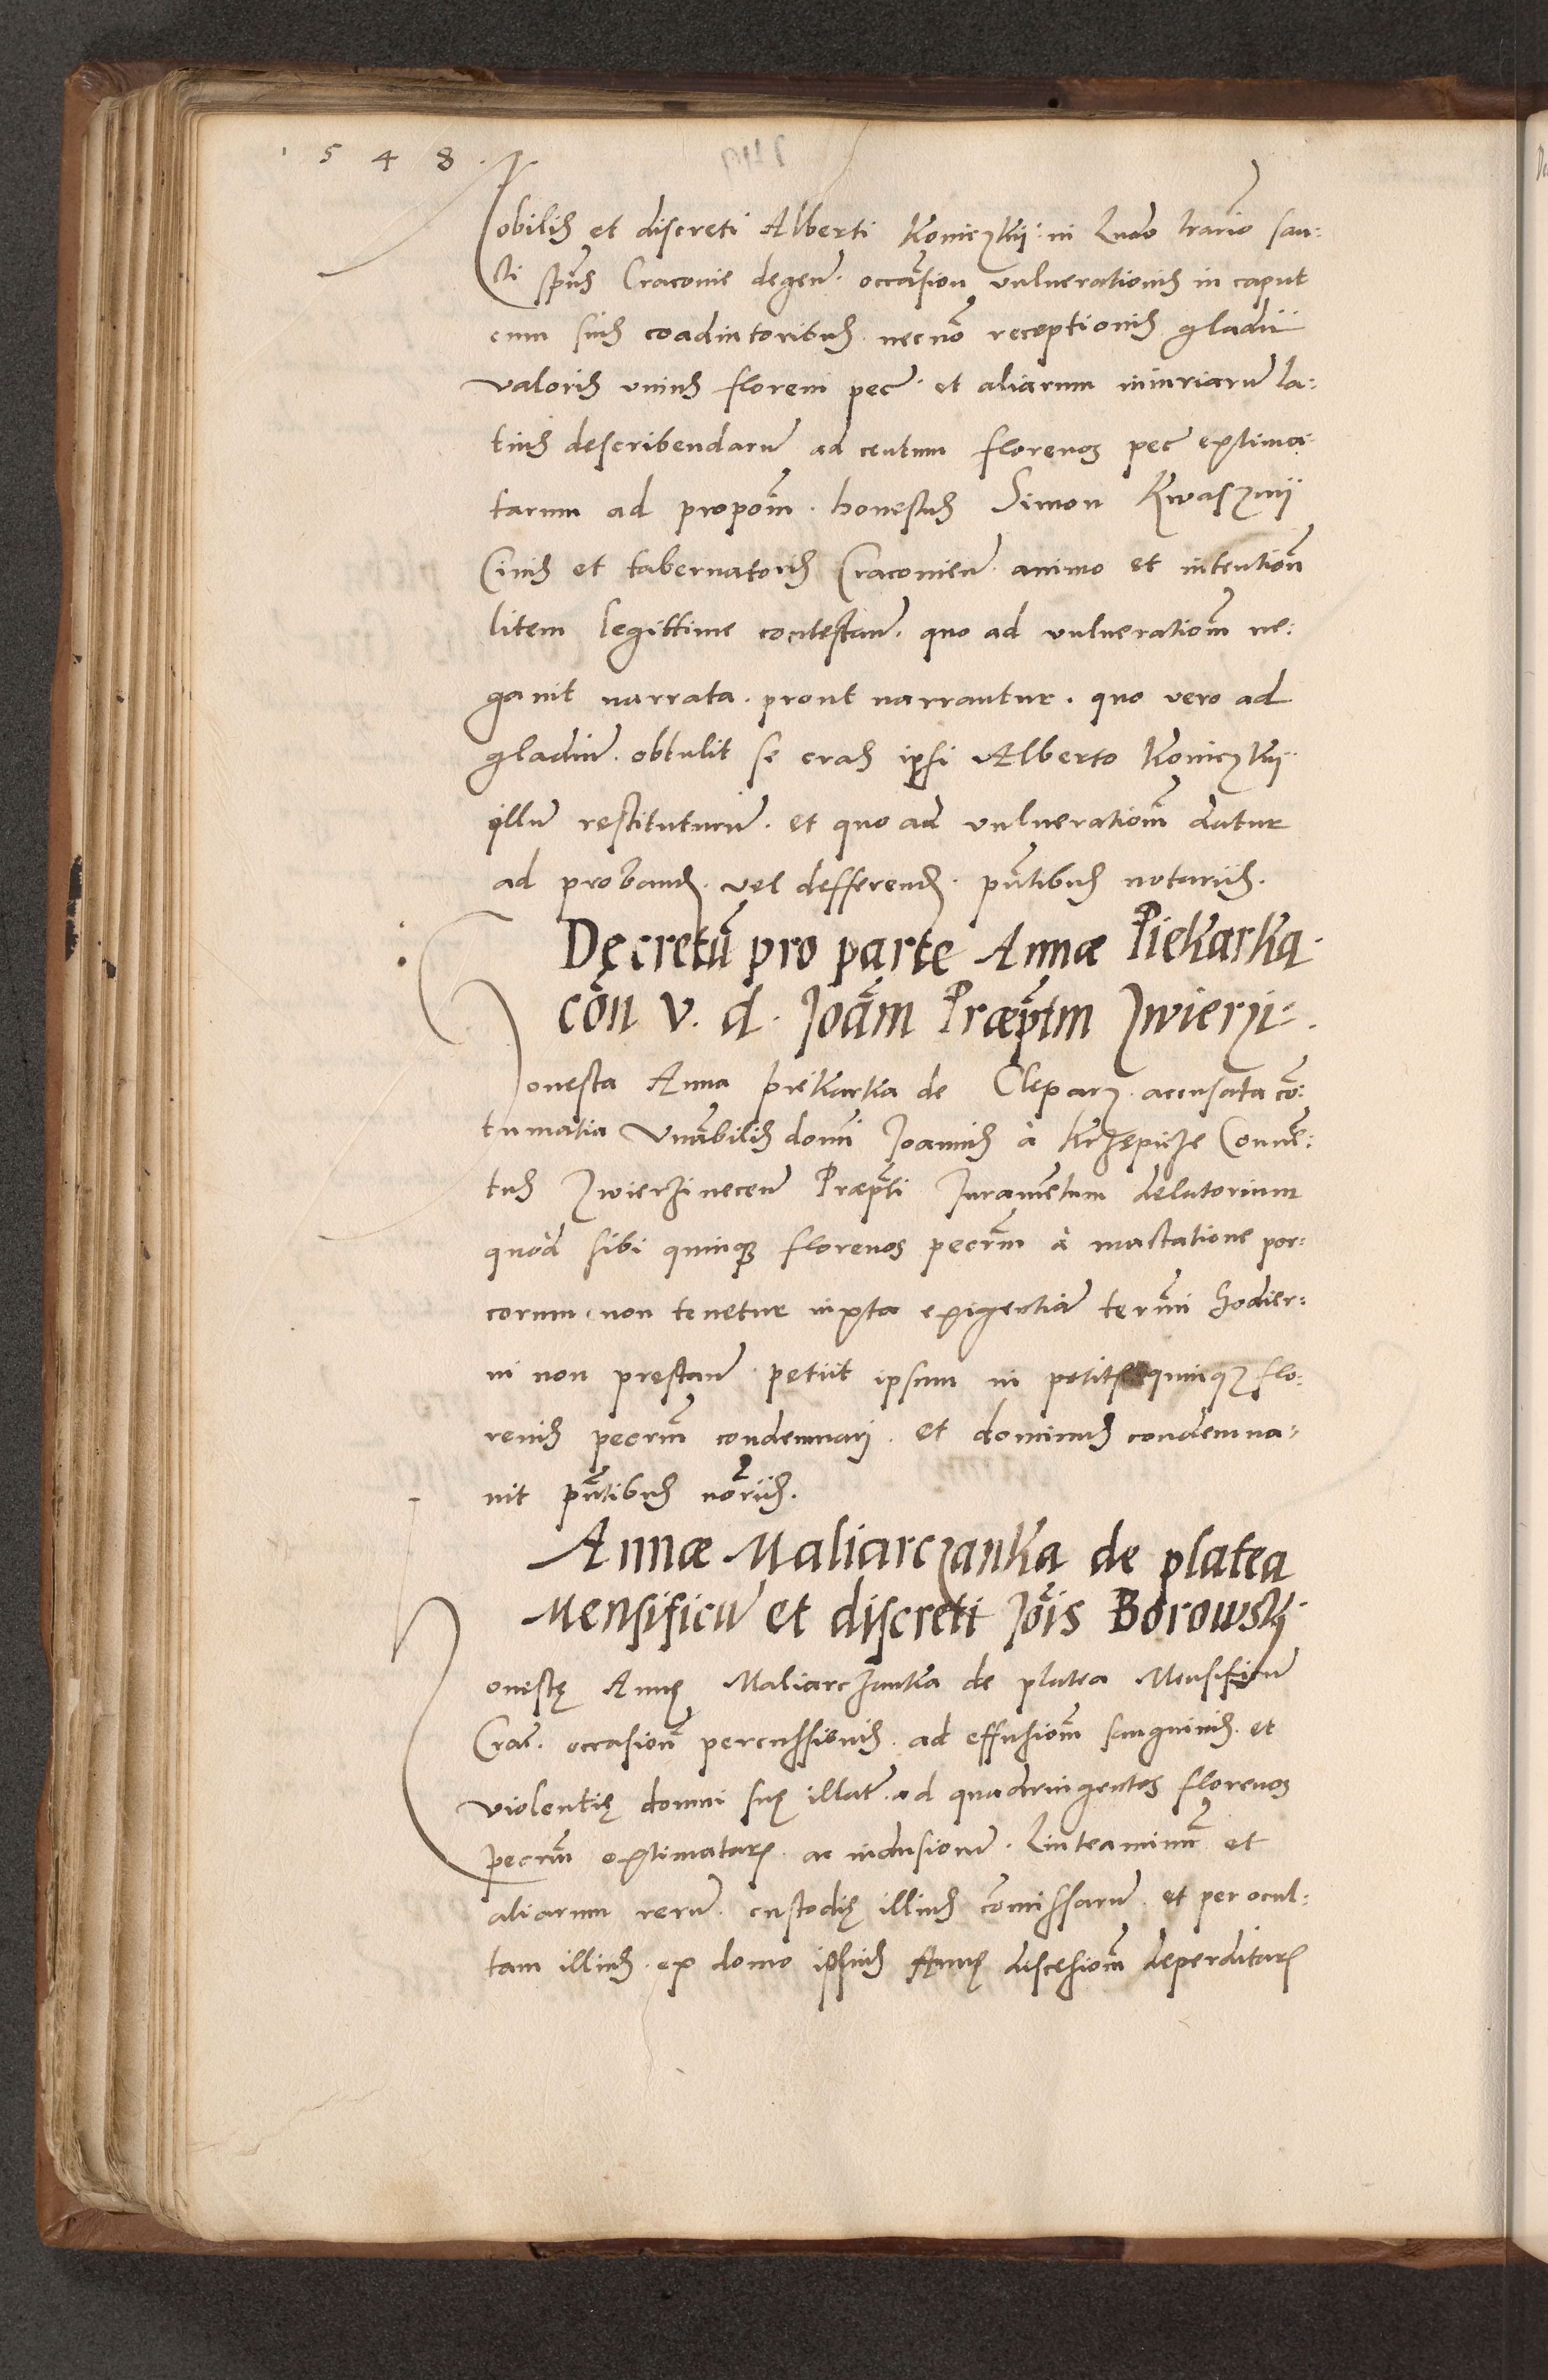 1 5 4 8 .
Nobilis et discreti Alberti Koniczkÿ in Ludo lrario san:
cti spūs Cracovie degen̄. occasion̄ vulnerationis in caput
cum suis coadiutoribus necnō receptionis gladii
valoris unius floreni pec̄. et aliarum iniuriarū la:
tius describendarū ad centum florenos pec̄ extima:
tarum ad propom̄. honestus Simon Kwasznÿ
Civis et tabernatoris Cracovien̄. animo et intention̄
litem legittime contestan̄. quo ad vulneratiom̄ ne:
gavit narrata. prout narrantur. quo vero ad
gladiū. obtulit se cras ipsi Alberto Koniczkÿ
illū restituturū. et quo ad vulneratiom̄ datur
ad proband̄. vel defferend̄. pn̄tibus notariis.
Decretū pro parte Annæ Piekarka
cōn v. d. Joām̄ Præp̄tm Zwierzi:.
Honesta Anna piekarka de Cleparz. accusata cō:
tumatia Vnābilis domī Joannis à Krzepicze Convē:
tus Zwierzinecen̄ Præp̄ti Iuramētum delatorium
quòd sibi quinqȝ florenos pecrm̄ à mactatione por:
corum non tenetur iuxta exigentiā term̄i hodier:
ni non prestan̄ petiit ipsum in petit̄ quinqȝ flo:
renis pecrm̄ condemnari. et dominus condemna:
vit pn̄tibus nōriis.
Annæ Maliarczanka de platea
Mensificū et discreti Jōis Borowskÿ
Honestę Annę Maliarczanka de platea Mensificū
Crac̄. occasion̄ percussionis. ad effusiom̄ sanguinis. et
violentię domui suę illat̄. ad quadringentos florenos
pecrm̄ extimatarȝ. ac indusiorū. linteaminū et
aliarum rerū. custodię illius cōmissarū. et per ocul:
tam illius. ex domo ipsius Annę discesiom̄ deperditarȝ